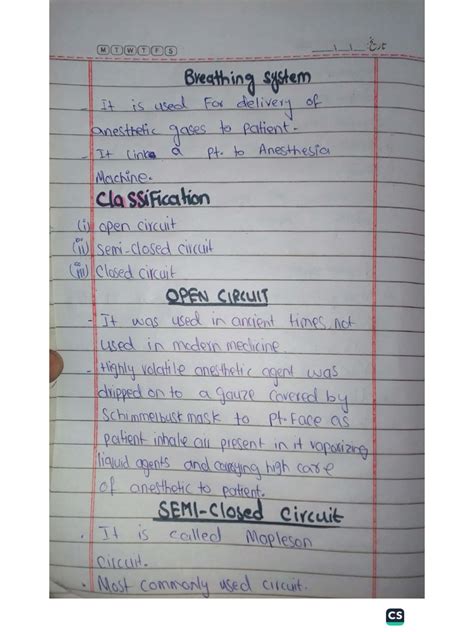 M T W T F S
تاریخ
Breathing system
- It is used For delivery of
anesthetic gases to patient.
- It links a pt. to Anesthesia
Machine.
Classification
(i) open circuit
(ii) semi-closed circuit
(iii) Closed circuit
OPEN CIRCUIT
- It was used in ancient times, not
used in modern medicine
- Highly volatile anesthetic agent was
dripped on to a gauze covered by
Schimmelbusk mask to pt-Face as
patient inhale air present in it vaporizing
liquid agents and carrying high care
of anesthetic to patient.
SEMI-Closed Circuit
. It is called Mapleson
Circuit.
. Most commonly used circuit.
CS